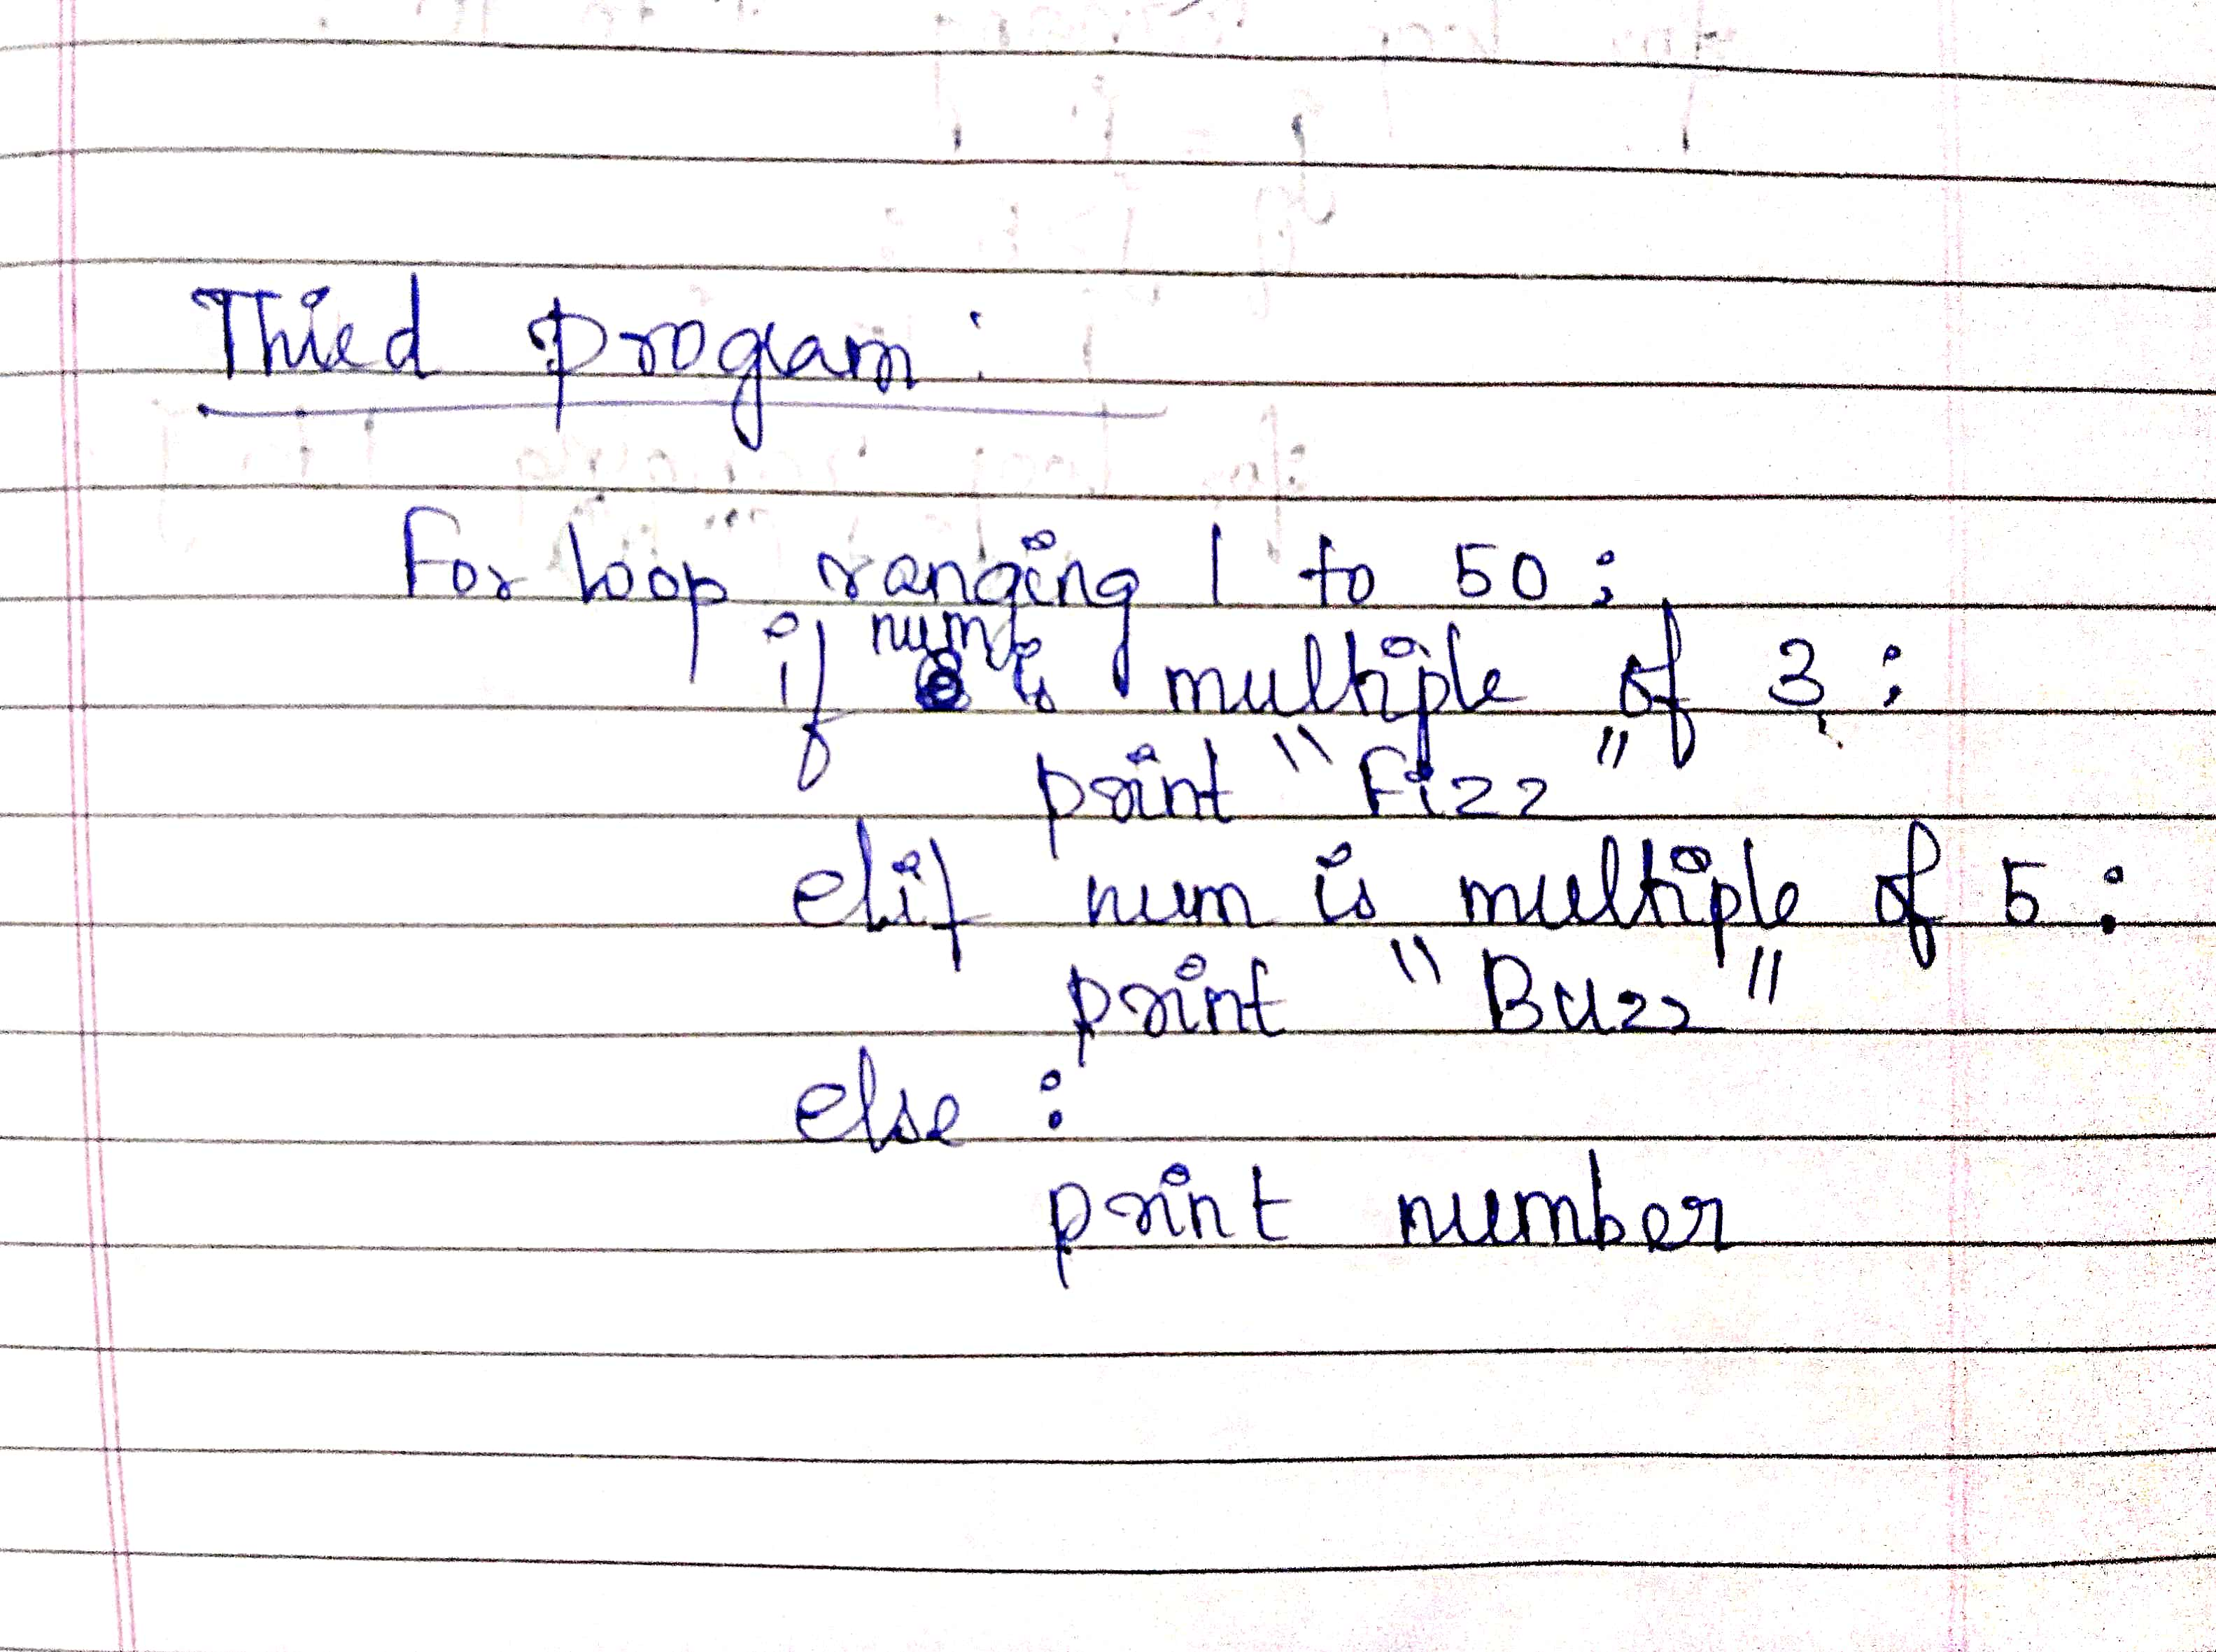 Third program:
For loop ranging 1 to 50:
if num is multiple of 3:
print "Fizz"
elif num is multiple of 5:
print "Buzz"
else:
print number